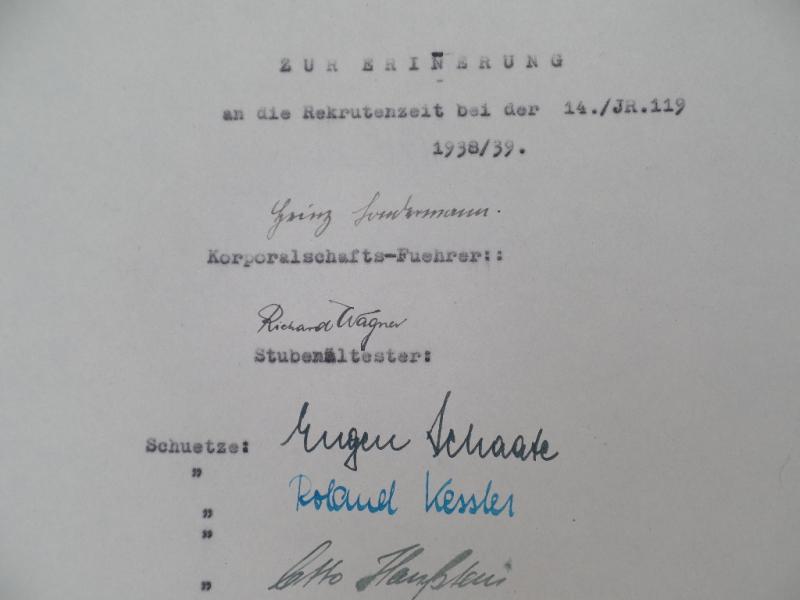 ZUR ERINERUNG
an die Rekrutenzeit bei der 14./JR.119
1938/39.
Heinz Sondermann.
Korporalschafts-Fuehrer::
Richard Wagner
Stubenältester:
Schuetze: Eugen Schaate
"
" Roland Kessler
"
" Otto